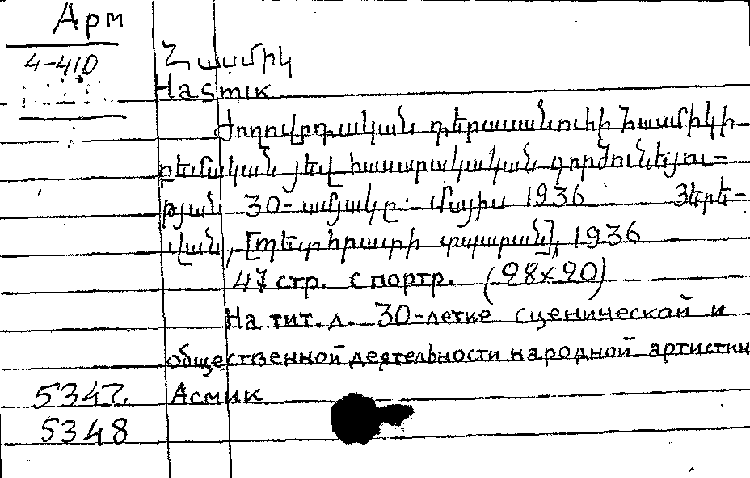 Арм
4-410
Հասմիկ
Hasmik
Ժողովրդական դերասանուհի Հասմիկի
բեմական յեվ հասարակական գործունեյու=
թյան 30-ամյակը. մայիս 1936 Յերե-
վան, [պետհրատի տպարան], 1936
47 стр. с портр. (28×20)
На тит. л. 30-летке сценической и
общественной деятельности народной артистки
Асмик
5347.
5348